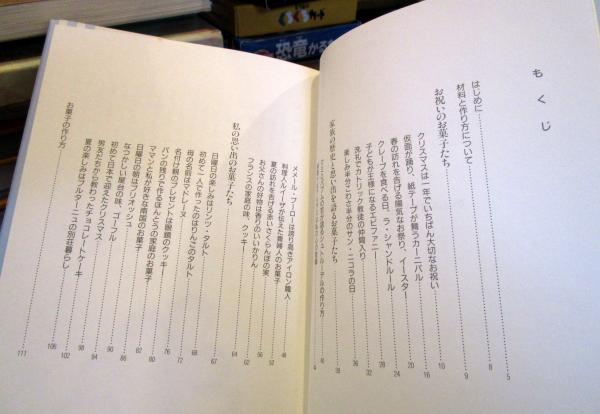 もくじ
はじめに 5
材料と作り方について 8
お祝いのお菓子たち 9
クリスマスは一年でいちばん大切なお祝い 10
仮面が踊り、紙テープが舞うカーニバル 16
春の訪れを告げる陽気なお祭り、イースター 20
クレープを食べる日、ラ・シャンドルール 24
子どもが王様になるエピファニー 28
洗礼でカトリック教徒の仲間入り 32
楽しみ半分こわさ半分のサン・ニコラの日 36
家族の歴史と思い出を語るお菓子たち 39
メメール・ブーローは誇り高きアイロン職人 48
料理人ルイーザが伝えた貴婦人のお菓子 52
夏の訪れを告げる赤いさくらんぼの実 56
お父さんの好物は香りのいいかりん
フランスの家庭の味、クッキー 62
私の思い出のお菓子たち 64
日曜日の楽しみはリンツァ・タルト 67
初めて一人で作ったのはりんごのタルト 68
母の名前はマドレーヌ 72
名付け親のプレゼントは眼鏡のクッキー 76
パンの残りで作るなんとうの家庭の味 77
ママンと私が好きな南国のお菓子 80
日曜日の朝はブリオッシュ 82
なつかしい屋台の味、ゴーフル 86
初めて日本で迎えたクリスマス 90
男友だちから教わったチョコレートケーキ 94
夏の楽しみはブルターニュの別荘暮らし 98
102
106
お菓子の作り方 111
恐竜か